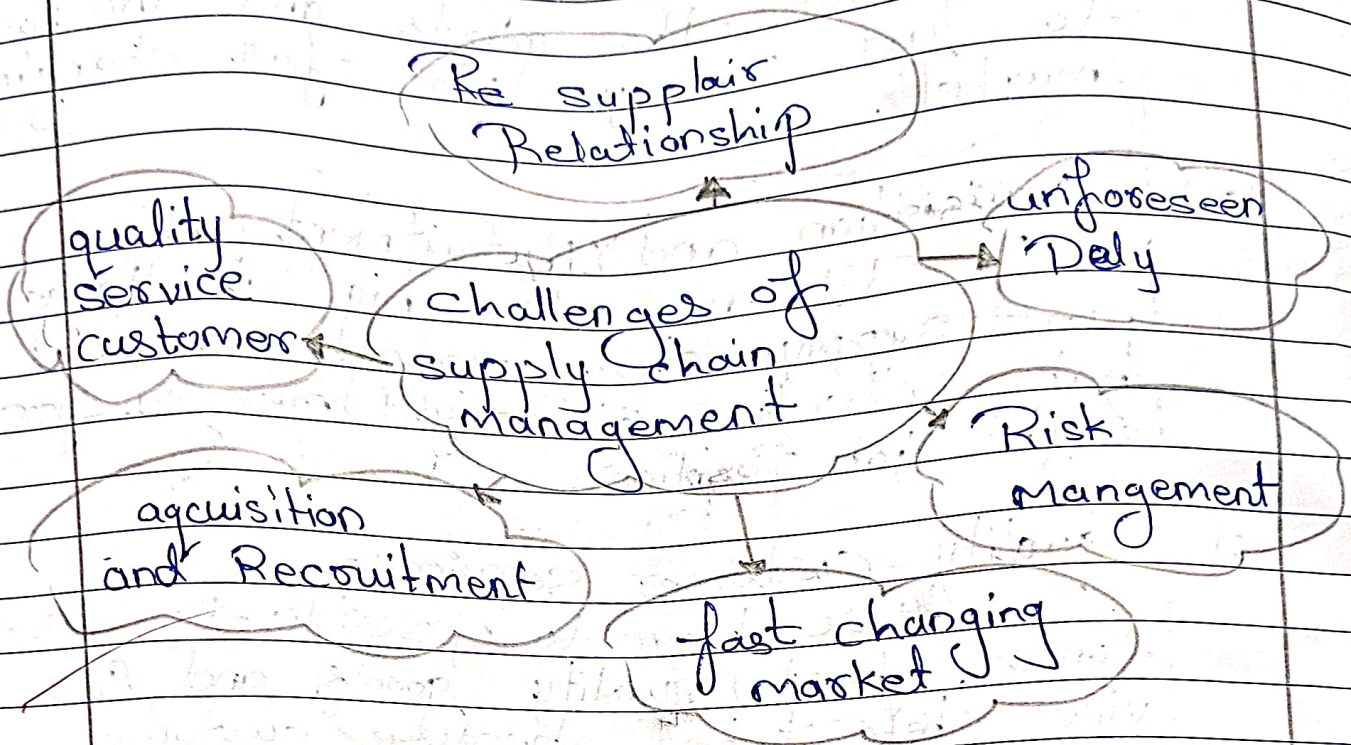 Re supplair
Relationship
unforeseen
Daly
quality
service
customer
challenges of
supply chain
management
Risk
Mangement
aqcuisition
and Recruitment
fast changing
market